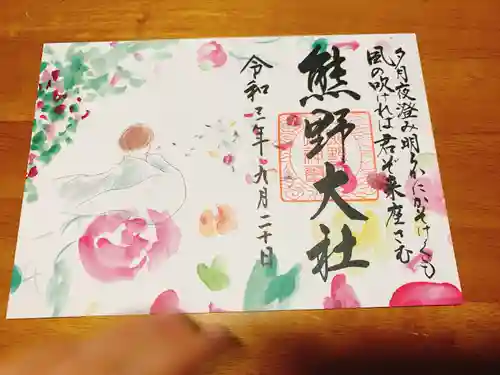 夕月夜澄み明らかにかそけくも
風の吹ければ君ぞ来座さむ
熊野大社
令和三年九月二十日